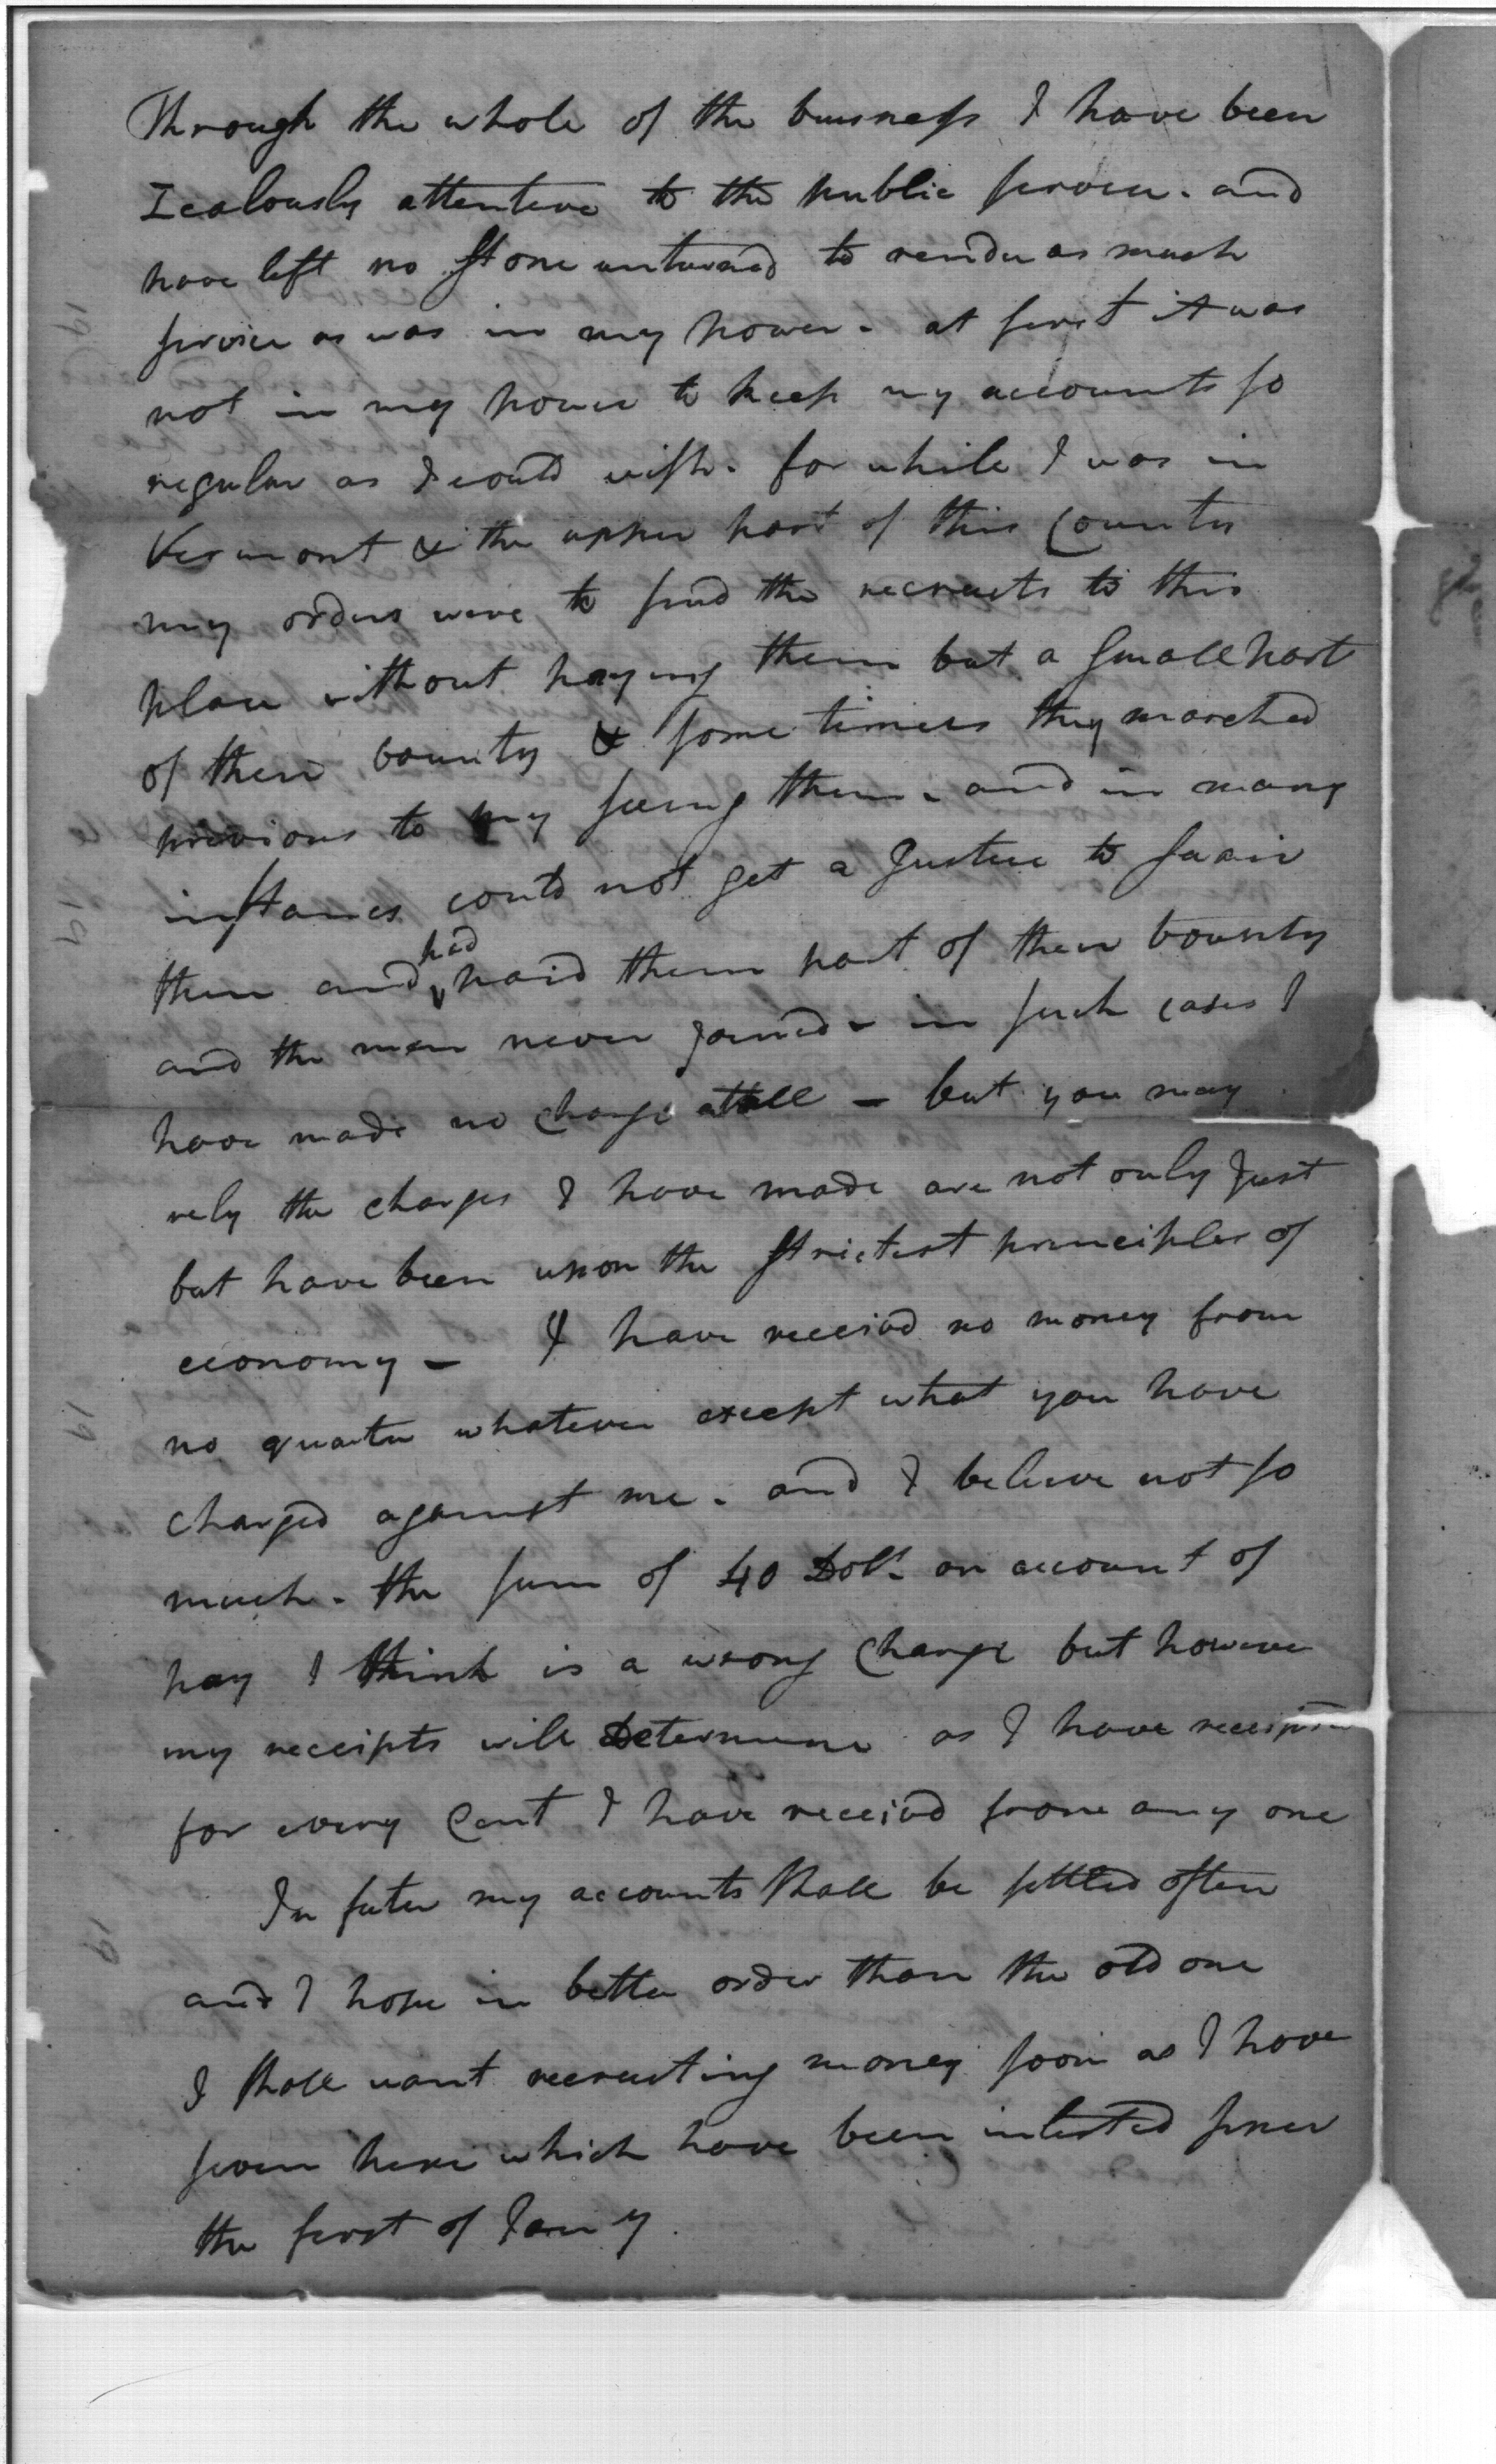 Through the whole of the buisness I have been
Zealously attentive to the public service. and
have left no stone unturned to render as much
service as was in my power. at first it was
not in my power to keep my accounts so
regular as I could wish. for while I was in
Vermont & the upper part of this County
my orders were to send the recruits to this
place without paying them but a small part
of their bounty & some times they marched
previous to my seeing them. and in many
instances could not get a Justice to swair
them and had paid them part of their bounty
and the men never joined - in such cases I
have made no charge attall - but you may
rely the charges I have made are not only Just
but have been upon the strictest principles of
economy - I have receivd no money from
no quarter whatever except what you have
charged against me. and I believe not so
much. the sum of 40 Dolls on account of
pay I think is a wrong charge but however
my receipts will Determine as I have receipted
for every Cent I have receivd from any one
In futer my accounts shall be settled often
and I hope in better order than the old one
I shall want recruiting money soon as I have
seven here which have been inlisted since
the first of Jany